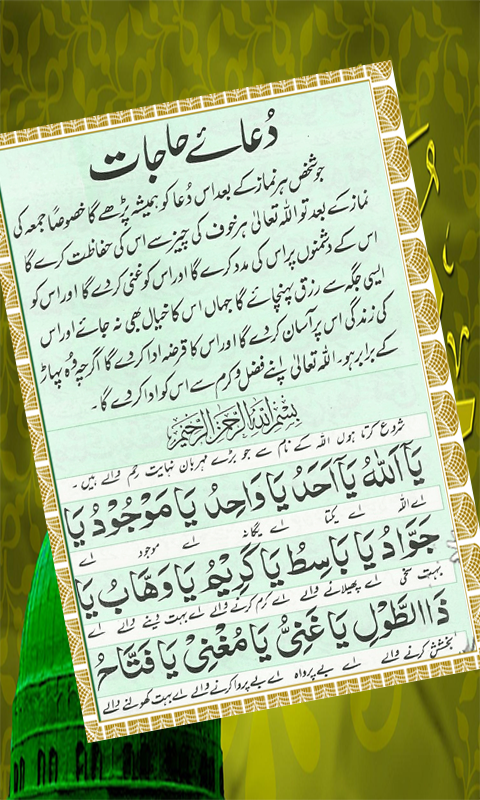 دُعائے حاجات
جو شخص ہر نماز کے بعد اس دُعا کو ہمیشہ پڑھے گا خصوصاً جمعہ کی
نماز کے بعد تو اللہ تعالیٰ ہر خوف کی چیز سے اس کی حفاظت کرے گا
اس کے دشمنوں پر اس کی مدد کرے گا اور اس کو غنی کردے گا اور اس کو
ایسی جگہ سے رزق پہنچائے گا جہاں اس کا خیال بھی نہ جائے اور اس
کی زندگی اس پر آسان کردے گا اور اس کا قرضہ ادا کردے گا اگرچہ وُہ پہاڑ
کے برابر ہو۔ اللہ تعالیٰ اپنے فضل و کرم سے اس کو ادا کردے گا۔
بِسْمِ اللهِ الرَّحْمٰنِ الرَّحِيْمِ
شروع کرتا ہوں اللہ کے نام سے جو بڑے مہربان نہایت رحم والے ہیں۔
يَآ اَللّٰهُ يَآ اَحَدُ يَا وَاحِدُ يَا مَوْجُوْدُ يَا
اے اللہ اے یکتا اے یگانہ اے موجود اے
جَوَّادُ يَا بَاسِطُ يَا كَرِيْمُ يَا وَهَّابُ يَا
بہت سخی اے پھیلانے والے اے کرم کرنے والے اے بہت دینے والے اے
ذَا الطَّوْلِ يَا غَنِيُّ يَا مُغْنِيْ يَا فَتَّاحُ
بخشش کرنے والے اے بے پرواہ اے بے پروا کرنے والے اے بہت کھولنے والے